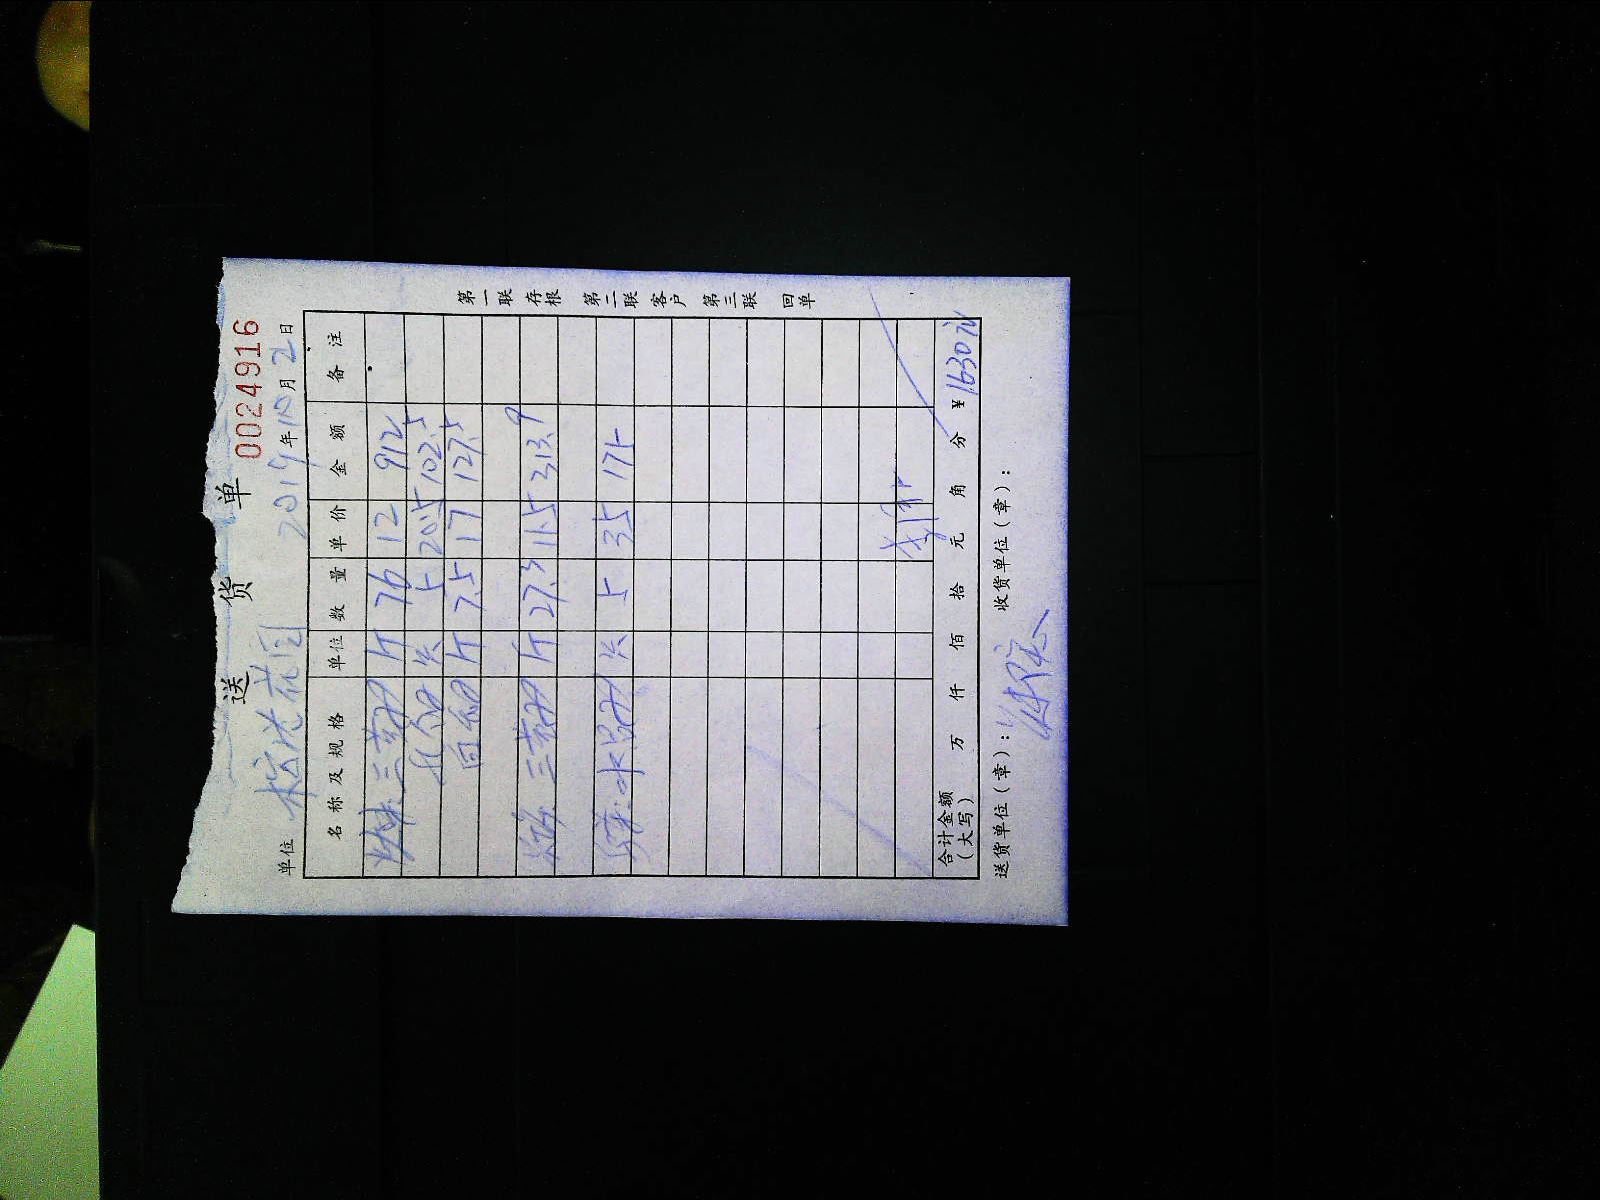 送 货 单 0024916
单位 花园 2019年10月2日
名称及规格 单位 数量 单价 金额 备注
三黄鸡 斤 76 12 912
只 5 20.5 102.5
斤 7.5 17 127.5
三黄鸡 斤 27.3 11.5 313.9
水 只 5 35 175
合计金额（大写） 万 仟 佰 拾 元 角 分 ¥ 1630元
送货单位（章）： 收货单位（章）：
第一联 存根 第二联 客户 第三联 回单